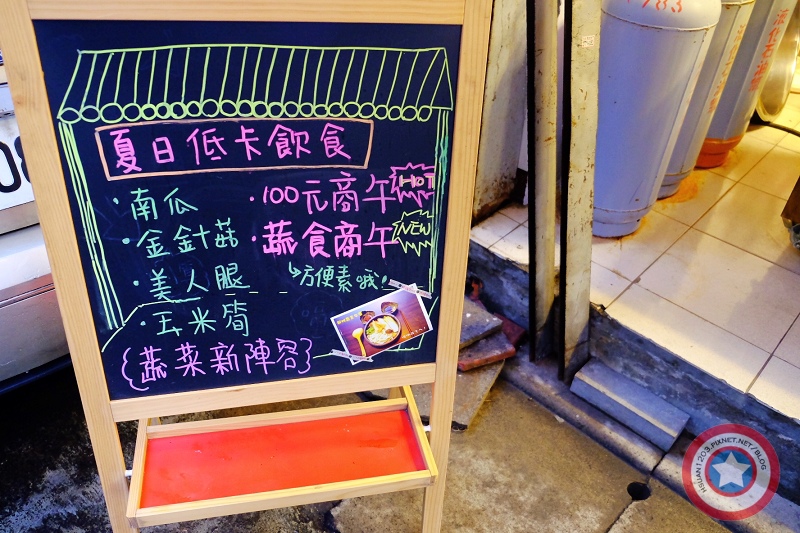 夏日低卡飲食
・南瓜
・金針菇
・美人腿
・玉米筍
{蔬菜新陣容}
・100元商午 HOT
・蔬食商午 NEW
↳方便素哦!
HSUAN1203.PIXNET.NET/BLOG